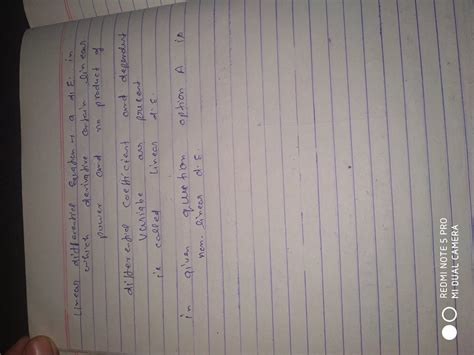 Linear differential Equation is a d.E. in
which derivative contain linear
power and no product of
differential coefficient and dependent
variable are present
is called linear d.E.
in given question option A is
non linear d.E.
REDMI NOTE 5 PRO
MI DUAL CAMERA